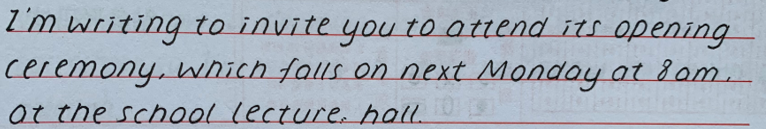 I'm writing to invite you to attend its opening
ceremony, which falls on next Monday at 8am.
at the school lecture. hall.